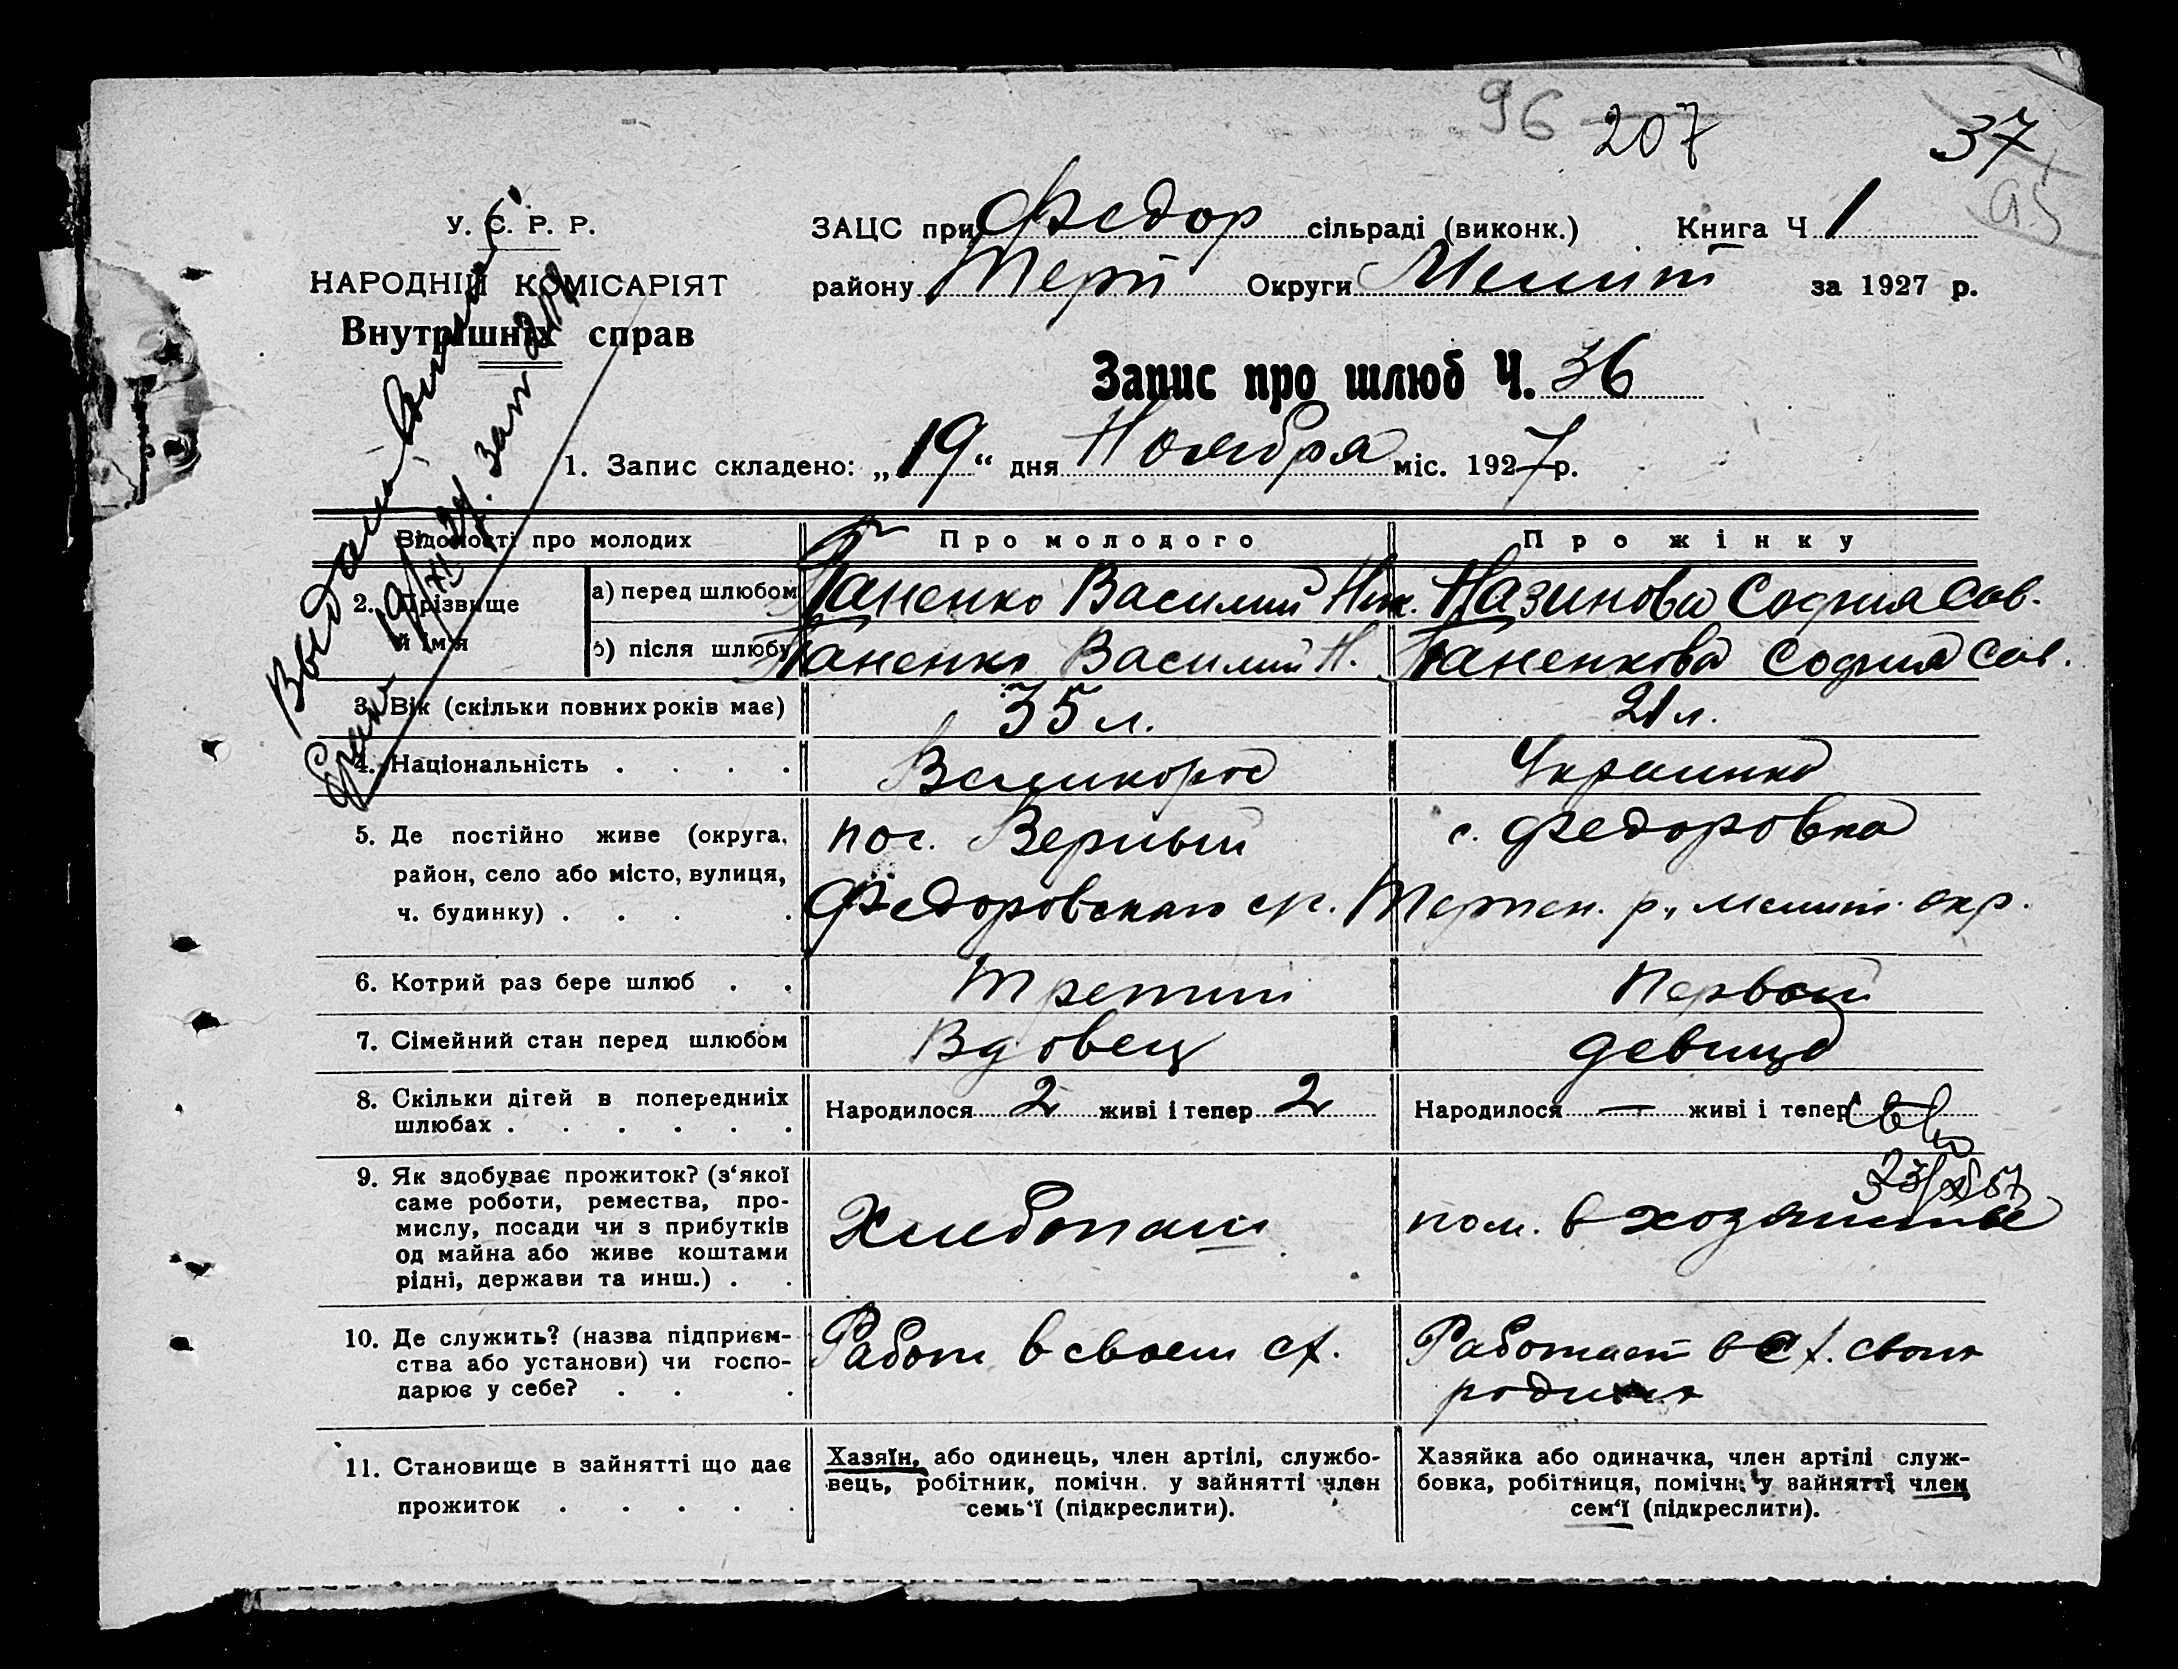 96 207 37
95
У. С. Р. Р.
НАРОДНІЙ КОМІСАРІЯТ
Внутрішніх справ
ЗАЦС при Федор сільраді (виконк.) Книга Ч 1
району Терп Округи Мелит за 1927 р.
Запис про шлюб Ч. 36
1. Запис складено: „19“ дня Ноября міс. 1927 р.
Відомості про молодих
Про молодого
Про жінку
2. Прізвище й ім'я
а) перед шлюбом
Паненко Василий Ник.
Назинова София Сав.
б) після шлюбу
Паненко Василий Н.
Паненкова София Сав.
3. Вік (скільки повних років має)
35 л.
21 л.
4. Національність . . . .
Великорос
Украинка
5. Де постійно живе (округа,
район, село або місто, вулиця,
ч. будинку) . . . .
пос. Верный
с. Федоровка
Федоровскаго ср. Терпен. р., мелит. окр.
6. Котрий раз бере шлюб . .
Третий
Первый
7. Сімейний стан перед шлюбом
Вдовец
девица
8. Скільки дітей в попередниіх
шлюбах . . . . . .
Народилося 2 живі і тепер 2
Народилося — живі і тепер
9. Як здобуває прожиток? (з‘якої
саме роботи, ремества, про-
мислу, посади чи з прибутків
од майна або живе коштами
рідні, держави та инш.) . .
Хлебопаш
пом. в хозяистве
10. Де служить? (назва підприєм-
ства або установи) чи госпо-
дарює у себе? . . .
Работ в своем сх.
Работает в сх. своих
родных
11. Становище в зайнятті що дає
прожиток . . . . .
Хазяїн, або одинець, член артілі, службо-
вець, робітник, помічн. у зайнятті член
семь‘ї (підкреслити).
Хазяйка або одиначка, член артілі служ-
бовка, робітниця, помічн. у зайнятті член
сем‘ї (підкреслити).